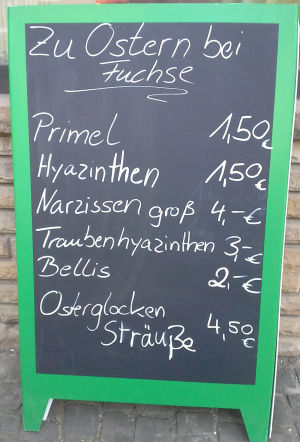 Zu Ostern bei
Fuchse
Primel 1,50€
Hyazinthen 1,50€
Narzissen groß 4,-€
Traubenhyazinthen 3,-€
Bellis 2,-€
Osterglocken
Sträuße 4,50€